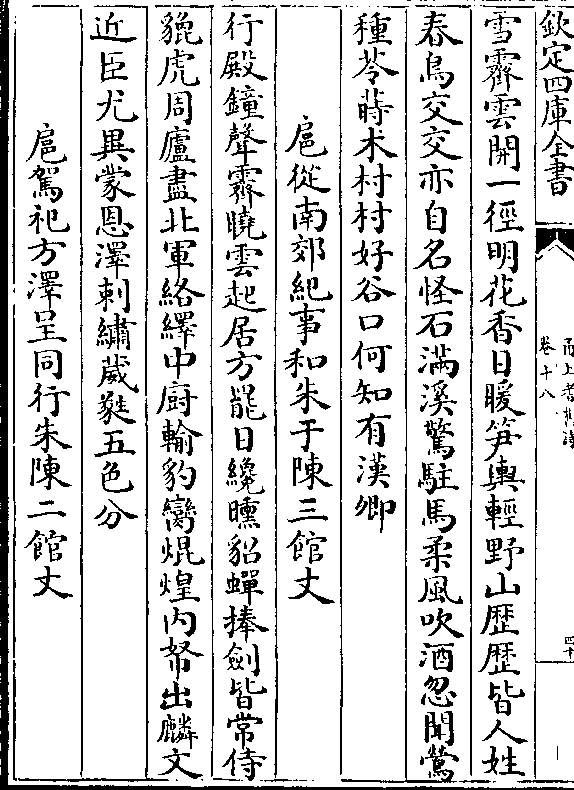 欽定四庫全書
甬上耆舊詩
卷十八
四十
雪霽雲開一徑明花香日暖笋輿輕野山歴歴皆人姓
春鳥交交亦自名怪石滿溪驚駐馬柔風吹酒忽聞鶯
種苓蒔术村村好谷口何知有漢卿
扈從南郊紀事和朱于陳三館丈
行殿鐘聲霽曉雲起居方罷日纔曛貂蟬捧劒皆常侍
貔虎周廬盡北軍絡繹中廚輸豹臠焜煌内帑出麟文
近臣尤異蒙恩澤刺繡葳蕤五色分
扈駕祀方澤呈同行朱陳二館丈